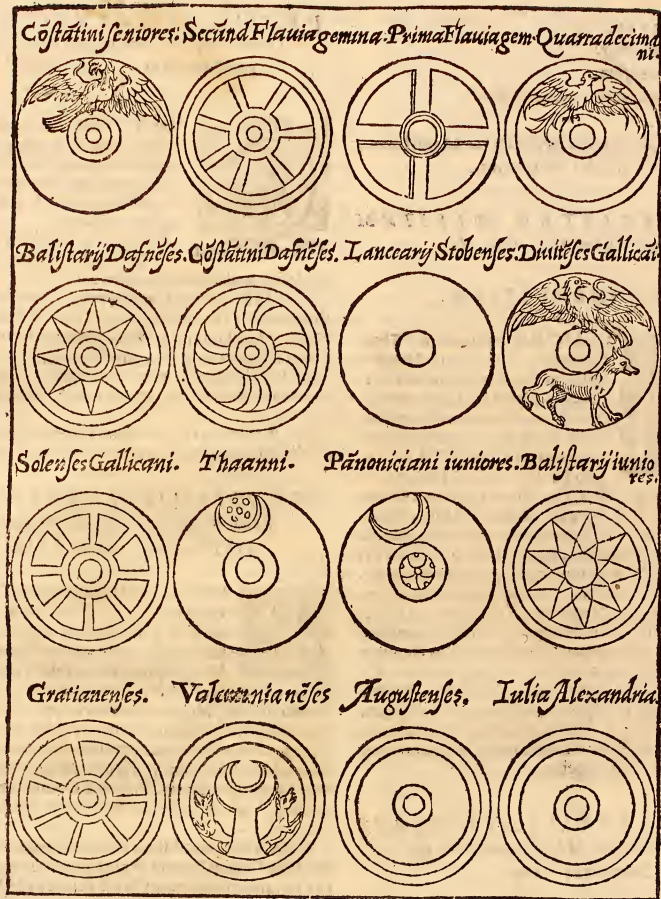 Cōstātini seniores. Secūnd Flauia gemina. Prima Flauia gem. Quartadecima
ni.
Balistarij Dafnēses. Cōstātini Dafnēses. Lancearij Stobenses. Diuitēses Gallicāi.
Solenses Gallicani. Thaanni. Pānoniciani iuniores. Balistarij iunio
res.
Gratianenses. Augustenses. Iulia Alexandria.